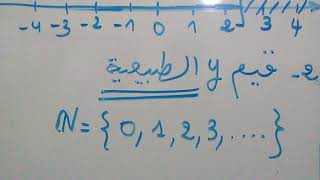 -4 -3 -2 -1 0 1 2 3 4
2- قيم y الطبيعية
N = {0, 1, 2, 3, ....}